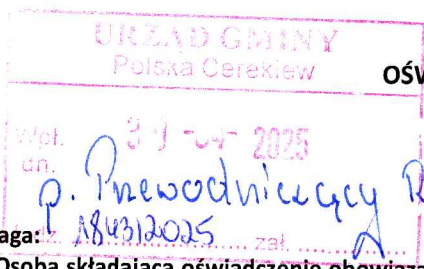 URZĄD GMINY
Polska Cerekiew
OŚW
Wpł.
dn. 2025
p. Przewodniczący R
aga: 1843/2025 zał.
Osoba składająca oświadczenie obowiąza